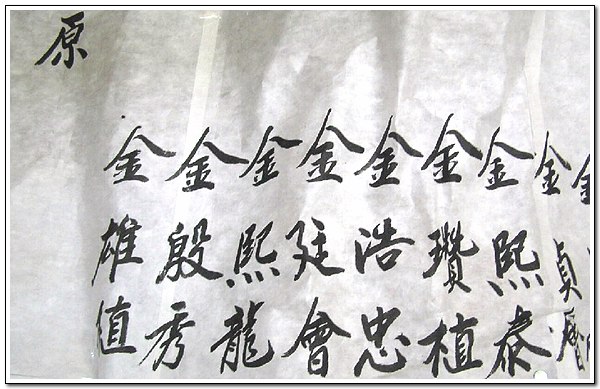 金
金貞
金熙泰
金瓚植
金浩忠
金廷會
金熙龍
金殷秀
金雄値
原